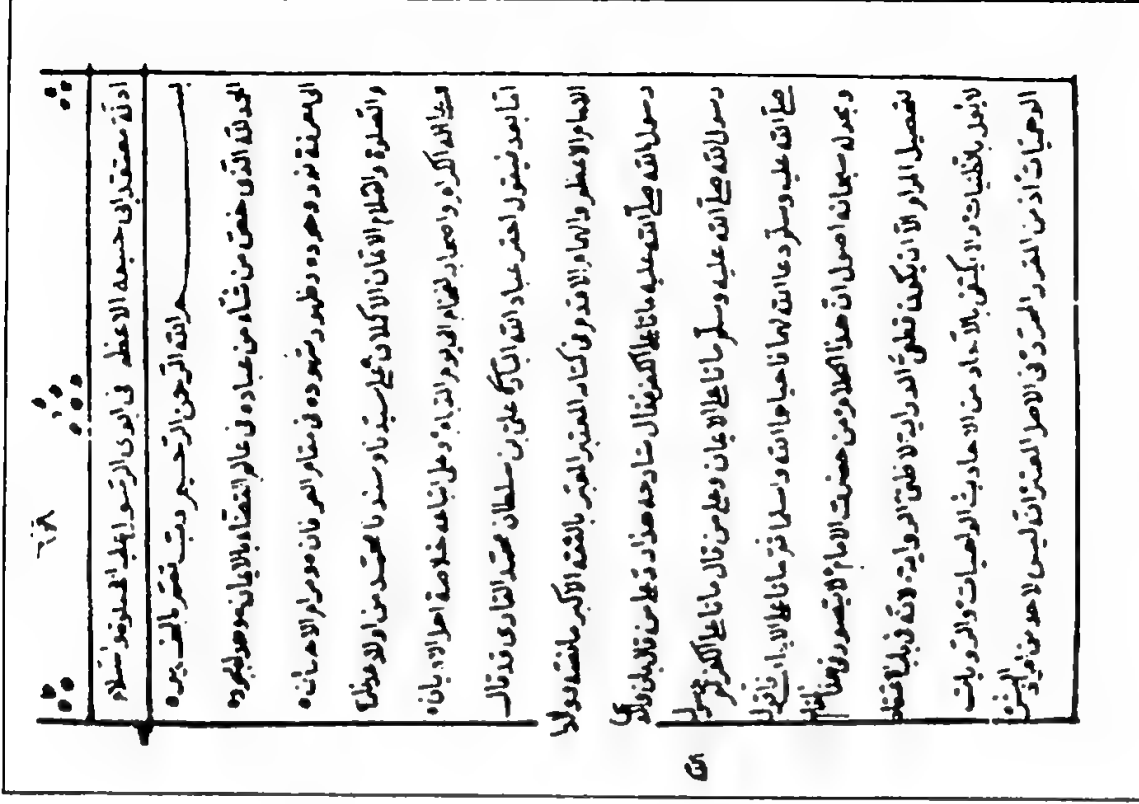 ادلة معتقد ابى حنيفة الاعظم فى ابوى الرسول عليه الصلوة والسلام
بسم الله الرحمن الرحيم رب تمم بالخير
الحمد لله الذى خص من شاء من عباده فى عالم القضاء بالايمان
الى معرفة نور وجوده وظهور شهوده فى مقام العرفان ومرام الاحسان
والصلوة والسلام الاتمان الاكملان على سيدنا وسندنا محمد من اولاد عدنان
وعلى اله الكرام واصحابه الفخام الى يوم وعلى اتباعه خلاصة اهل الاديان
اما بعد فيقول احقر عباد الله البارى على بن سلطان محمد القارى قد قال
الامام الاعظم والهمام الاقدم فى كتابه المعتبر المعبر بالفقه الاكبر ما نصه ووالدا
رسول الله صلى الله عليه ماتا على الكفر فقال شارحه هذا رد على من قال بان والدى
رسول الله صلى الله عليه وسلم ماتا على الايمان وعلى من قال ماتا على الكفر ثم رسول
الله
صلى الله عليه وسلم دعا الله لهما فاحياهما الله واسلما ثم ماتا على الايمان فاقول
وبحوله سبحانه اصول ان هذا الكلام من حضرت الامام لا يتصور فى هذا المقام
لتحصيل المرام الا ان يكون قطعى الدراية لا ظنى الرواية لانه فى باب الاعتقاد
لا يعمل بالظنيات ولا يكتفى بالآحاد من الاحاديث الواهيات والروايات
الوهميات اذ من المقرر المحرر فى الاصل المعتبر انه ليس لاحد من افراد البشر